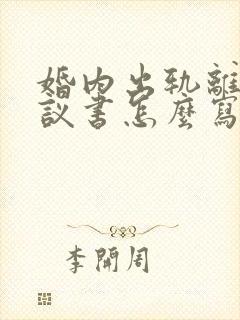 婚內出軌離
議書怎麼寫
李開周